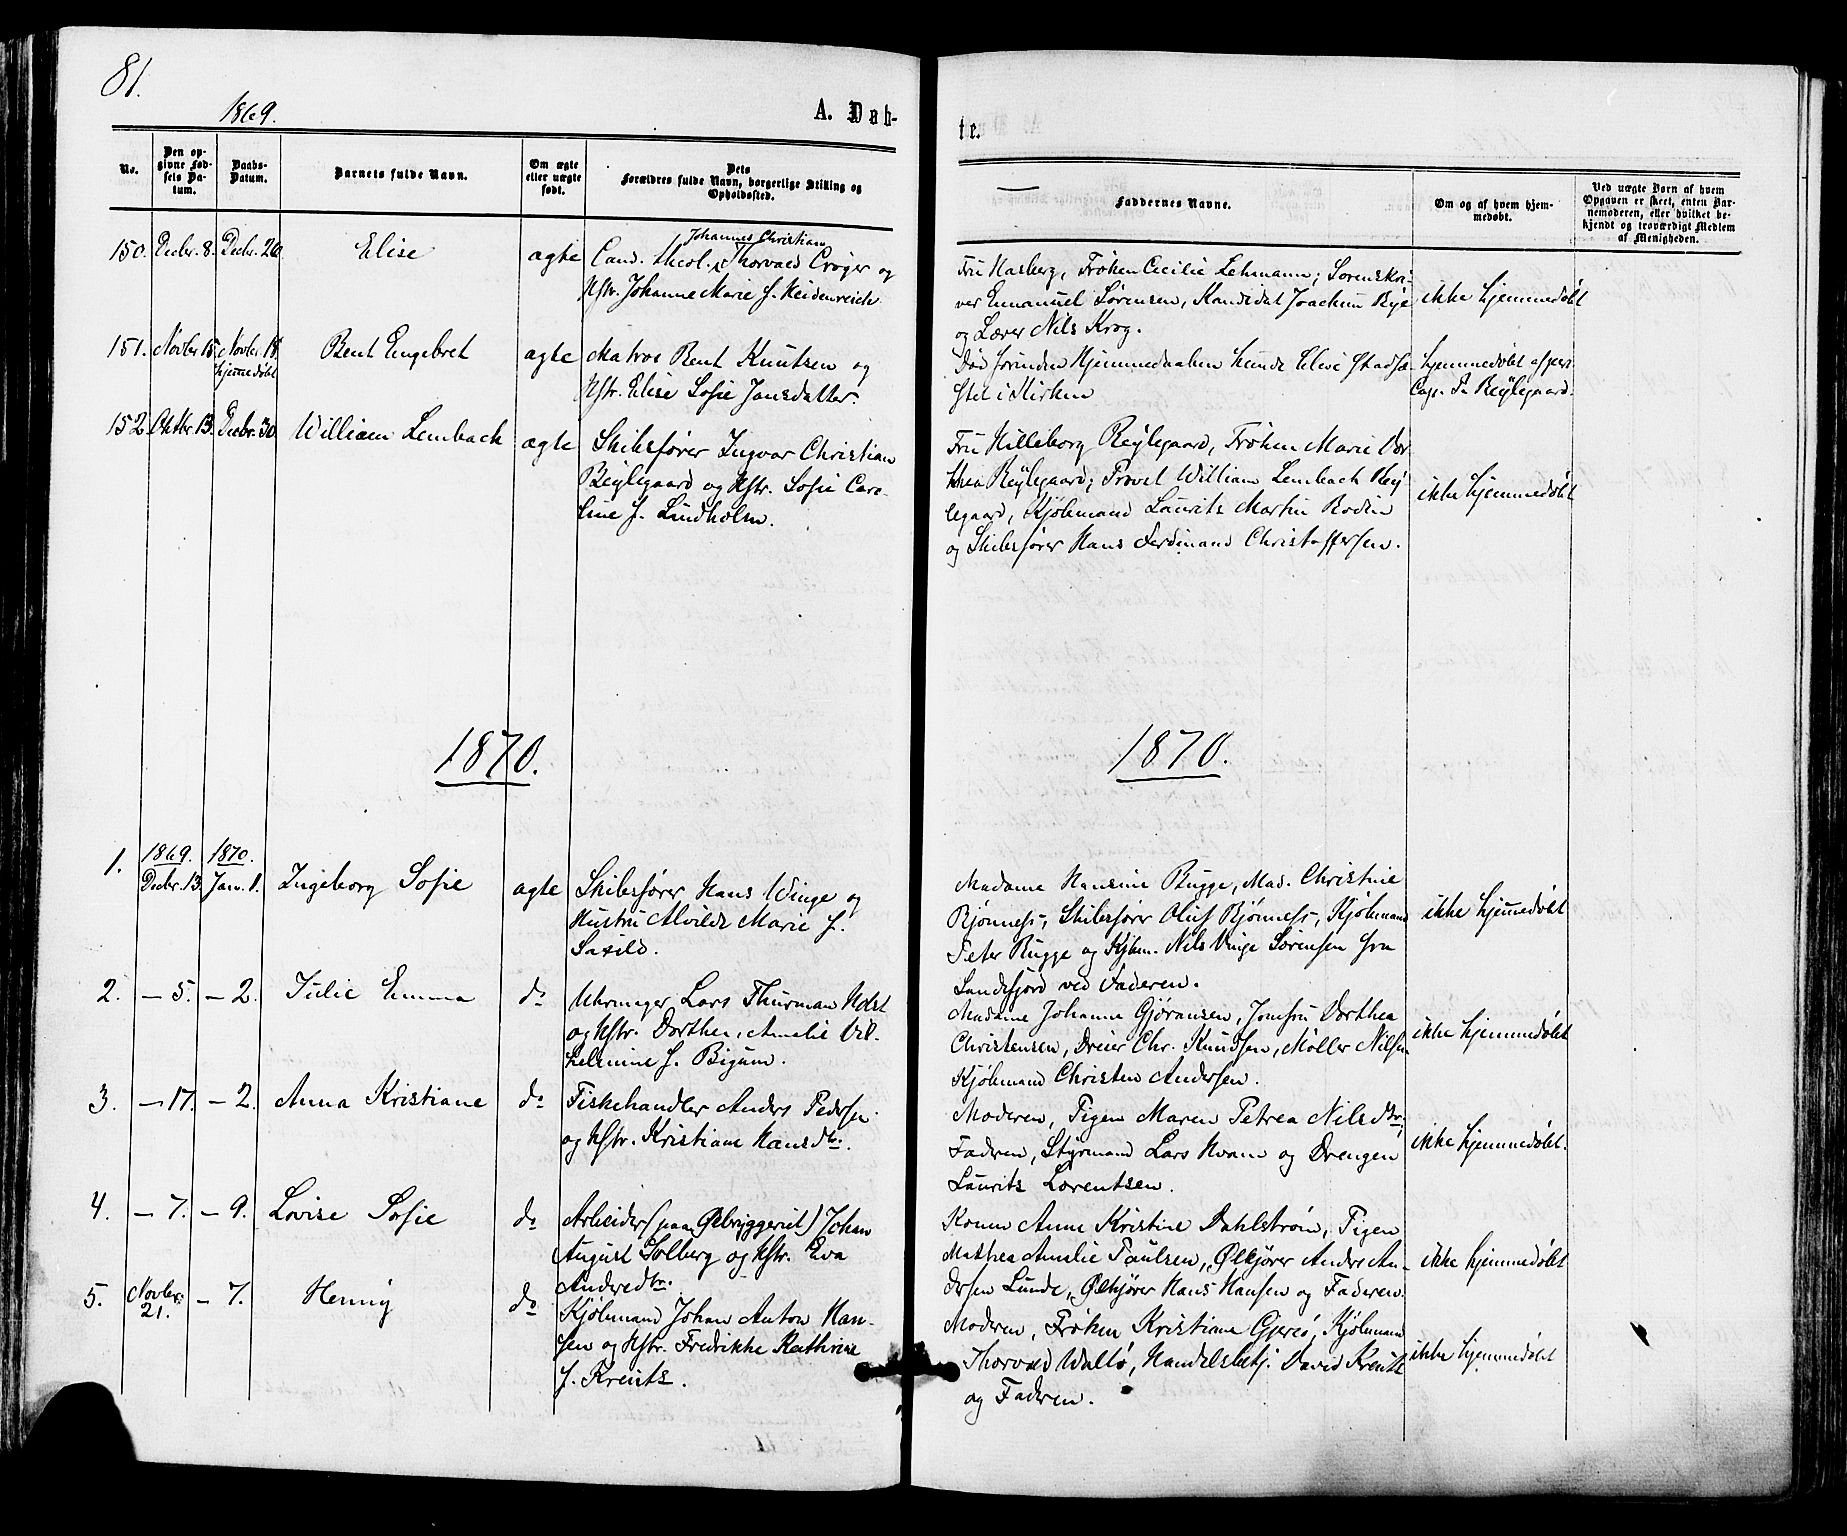 81.
1869.
A. Døb-
te.
No.
Den op-
givne Fød-
sels Da-
tum.
Daabs-
Datum.
Barnets fulde Navn.
Om ægte
eller uægte
født.
Dets
Forældres fulde Navn, borgerlige Stilling og
Opholdssted.
Faddernes Navne.
Om og af hvem hjem-
medøbt.
Ved uægte Børn af hvem
Opgaven er skeet, enten Bar-
nemoderen, eller hvilket be-
kjendt og troværdigt Medlem
af Menigheden.
150. Decbr. 8. Decbr. 26 Elise ægte
Johannes Christian
Cand. theol. Thorvald Crøger og
Hstr. Johanne Marie f. Heidenreich.
Fru Hasberg, Frøken Cecilie Lehmann; Sorenskri-
ver Emmanuel Sørensen, Kandidat Joachim Bye
og Lærer Nils Krog.
ikke hjemmedøbt
151. Novbr. 15. Novbr. 18.
hjemmedøbt
Bent Engebret ægte
Matros Bent Knutsen og
Hstr. Elise Sofie Jansdatter.
Død forinden Hjemmedaaben kunde blive stadfæ-
stet i Kirken
hjemmedøbt af pers.
Cap. P. Beylegaard.
152. Oktbr. 13. Decbr. 30. William Lembach ægte
Skibsfører Ingvar Christian
Beylegaard og Hstr. Sofie Caro-
line f. Lindholm.
Fru Hilleborg Beylegaard, Frøken Marie Dor-
thea Beylegaard; Provst William Lembach Bey-
legaard, Kjøbmand Laurits Martin Bodin
og Skibsfører Hans Ferdinand Christoffersen.
ikke hjemmedøbt
1870.
1870.
1. 1869. 1870.
Decbr. 13. Janr. 1. Ingeborg Sofie ægte
Skibsfører Hans Winge og
Hustru Alvilde Marie f.
Saxild.
Madame Hansine Bugge, Mad. Christine
Bjønness, Skibsfører Oluf Bjønness, Kjøbmand
Peter Bugge og Kjbm. Nils Vinge Sørensen fra
Sandefjord ved Faderen.
ikke hjemmedøbt
2. — 5. — 2. Julie Emma do
Uhrmager Lars Thurman Holst
og Hstr. Dorthea Amalie Vil-
helmine f. Bigum.
Madame Johanne Gjøransen, Jomfru Dorthea
Christensen, Dreier Chr. Knudsen, Møller Nilsen
Kjøbmand Christen Andersen.
ikke hjemmedøbt
3. — 17. — 2. Anna Kristiane do
Fiskehandler Anders Pedersen
og Hstr. Kristiane Hansdtr.
Moderen, Pigen Maren Petrea Nilsdtr;
Faderen, Styrmand Lars Hvam og Drengen
Laurits Lorentsen.
ikke hjemmedøbt.
4. — 7. — 9. Lovise Sofie do
Arbeider (paa Ølbryggeriet) Johan
August Solberg og Hstr. Eva
Andresdtr.
Konen Anne Kristine Dahlstrøm, Pigen
Mathea Amalie Paulsen, Ølkjører Anders An-
dersen Lunde, Ølkjører Hans Hansen og Faderen.
ikke hjemmedøbt
5. Novbr.
21. — 7. Henny do
Kjøbmand Johan Anton Han-
sen og Hstr. Fredrikke Kathrine
f. Kreutz.
Moderen, Frøken Kristiane Gjersø, Kjøbmand
Thorvald Waltø, Handelsbetj. David Kreutz
og Faderen.
ikke hjemmedøbt